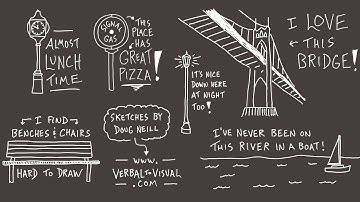 ALMOST
LUNCH
TIME
SIGNAL
GAS
THIS
PLACE
HAS
GREAT
PIZZA!
IT'S NICE
DOWN HERE
AT NIGHT
TOO!
I LOVE
THIS
BRIDGE!
I FIND
BENCHES & CHAIRS
HARD TO DRAW
SKETCHES BY
DOUG NEILL
WWW.
VERBALTOVISUAL
.COM
I'VE NEVER BEEN ON
THIS RIVER IN A BOAT!